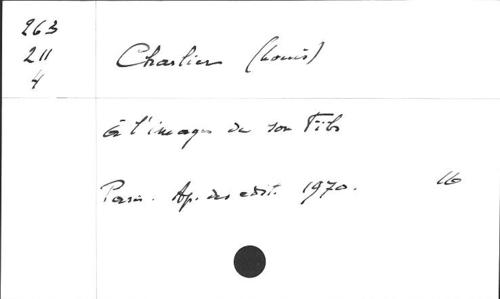 263
211
4
Charlier (Louis)
à l'image de son Fils
Paris. Ap. des édit. 1970. 16